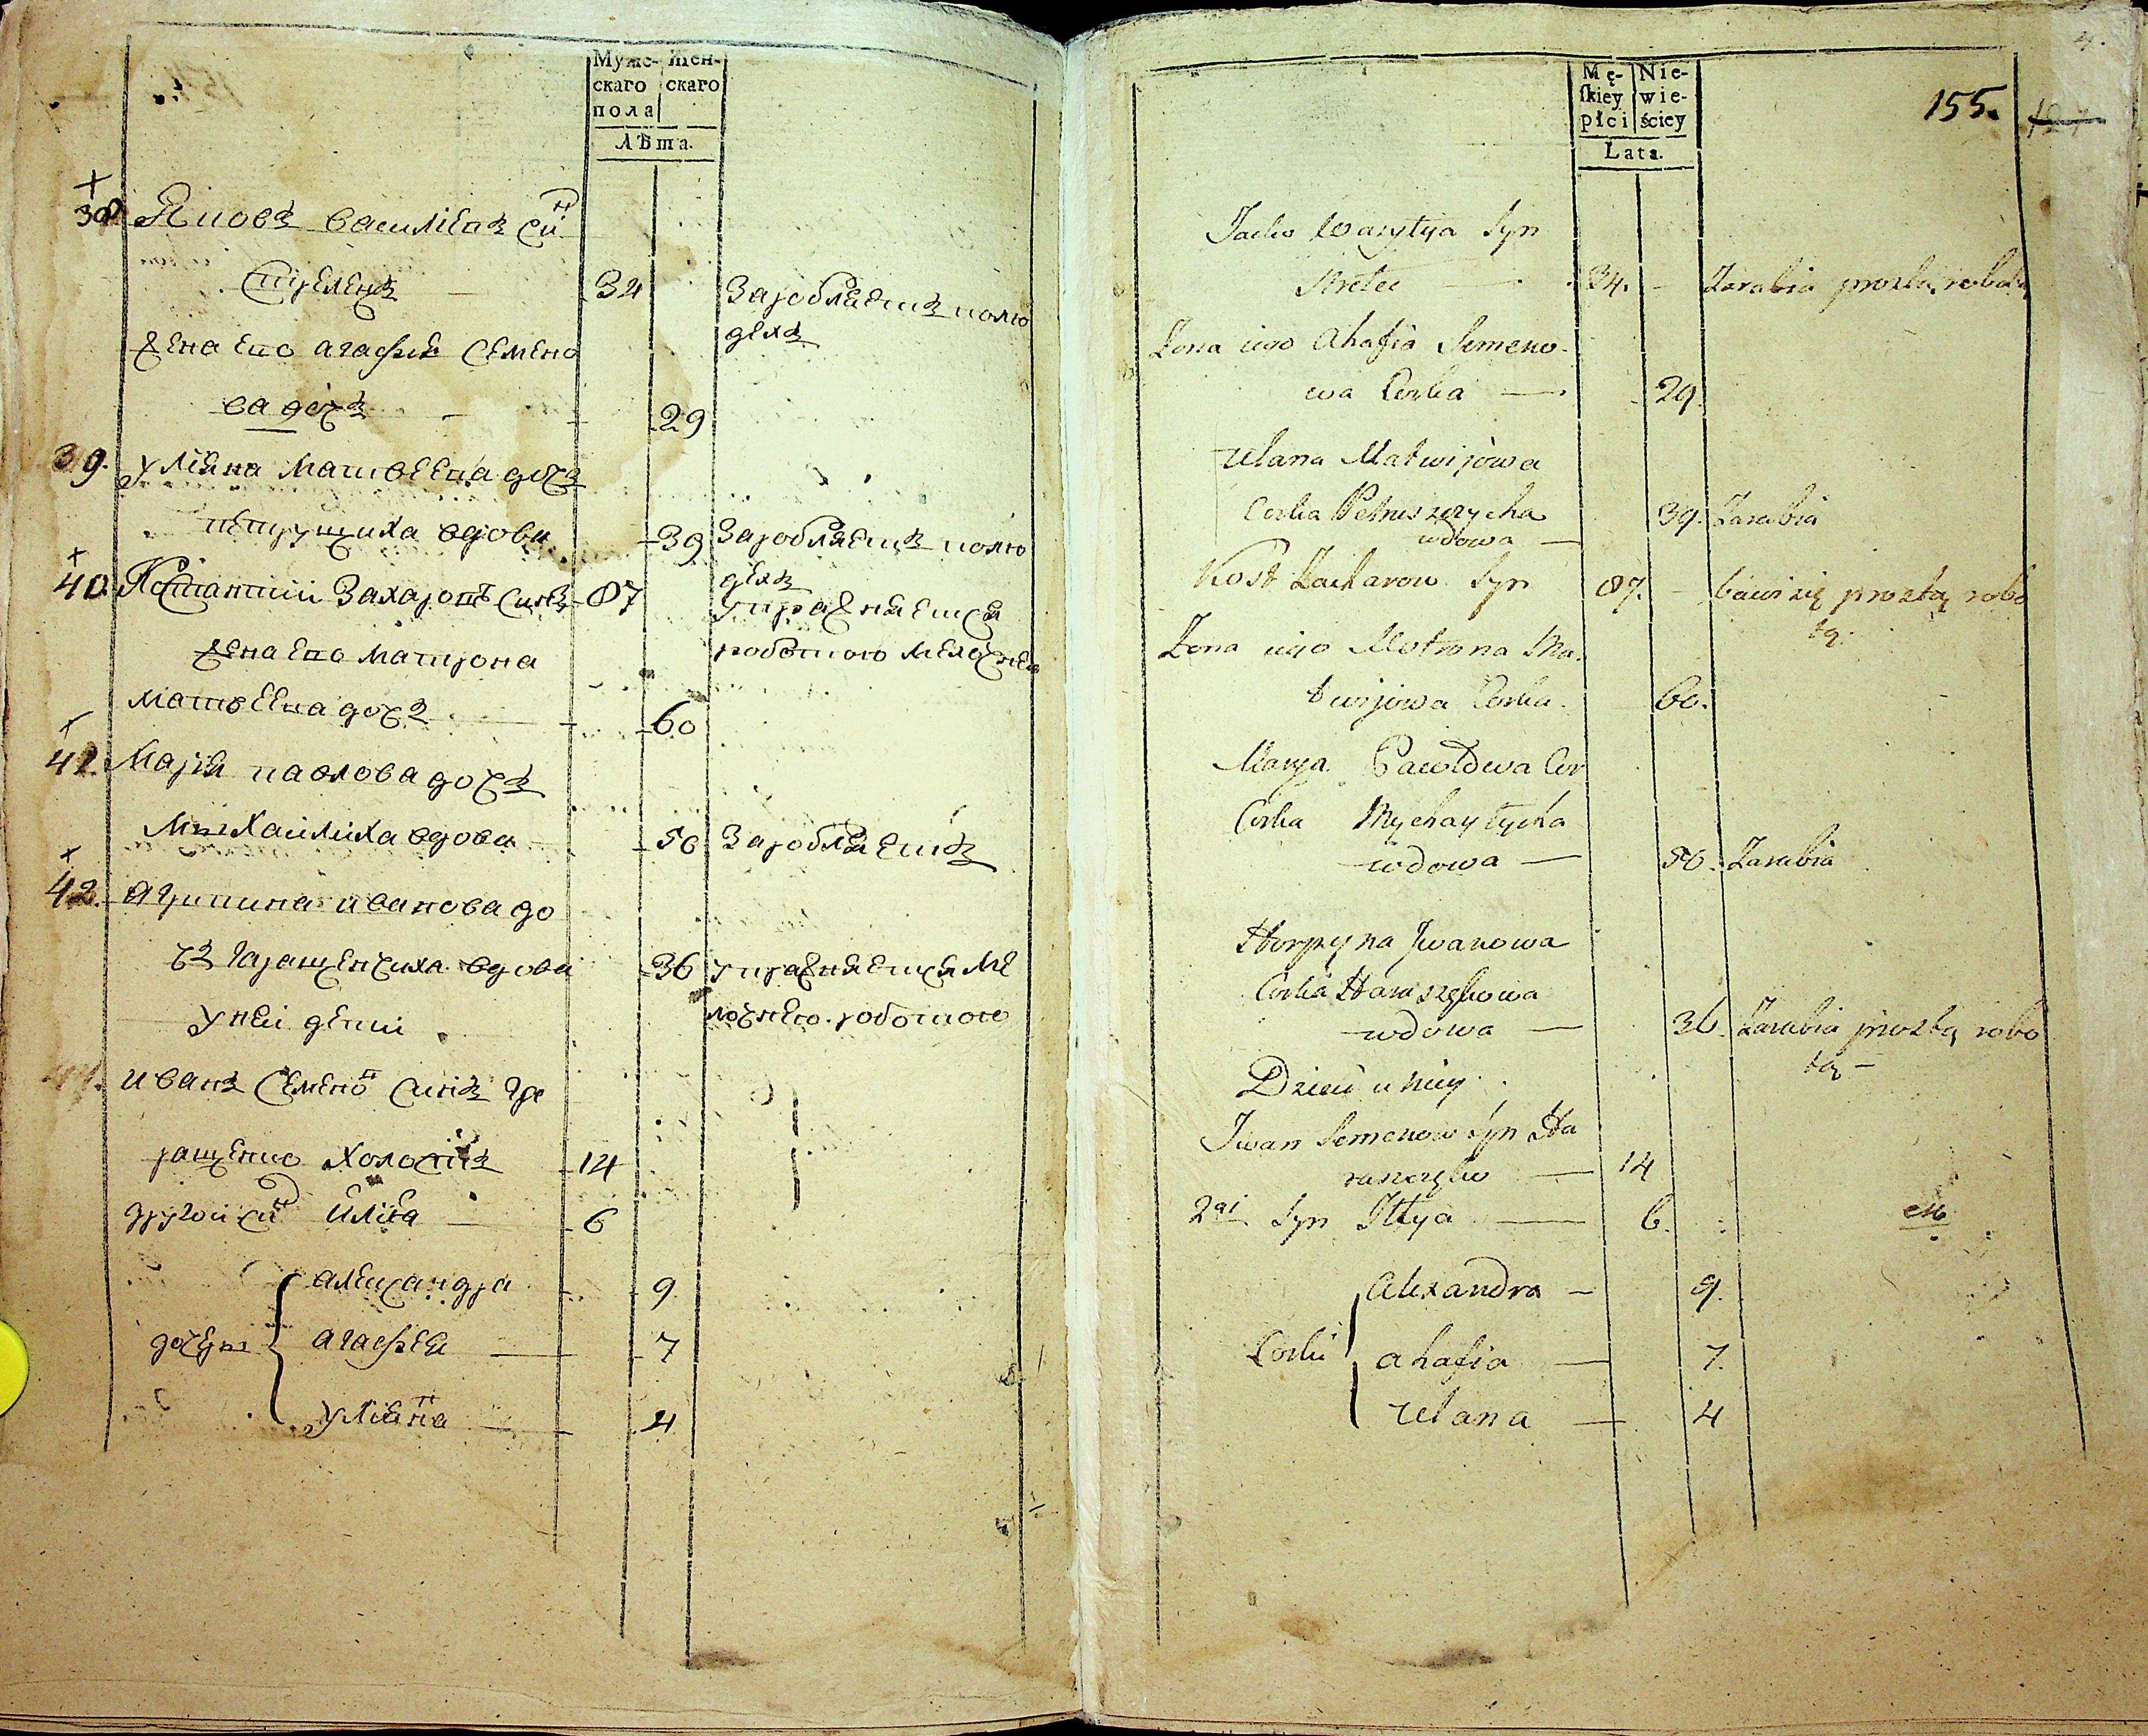 Муже- Жен-
скаго скаго
пола
ЛѢта.
38 Яковъ василіевъ сынъ
стрелецъ 34 Заробляетъ полю
дехъ
жена его агафіа семено
ва дочъ 29
39. уліяна матвеева дочъ
петрущиха вдова 39 Заробляетъ полю
дехъ
40. Костантии Захаровъ синъ 87 упражняется
жена его матрона работою мелочнею
матвеева дочъ 60
41. Марія павлова дочъ
Михайлиха вдова 50 Заробляетъ
42. агрипина иванова до
чъ гаращенчиха вдова 36 упражняется ме
лочнею роботою
у неи дети
иванъ семеновъ синъ га
ращенко холостъ 14
другои синъ илія 6
александра 9
дочери агафія 7
уліяна 4
Mę- Nie-
ſkiey wie-
płci ściey
Lata.
155.
Jacko Wasylya Syn
Strelec 34. Zarabia prostą robotą
Zona iego Ahafia Semeno-
wa Corka 29
Ulana Matwijowa
Corka Petruszczycha 39. Zarabia
wdowa
Kost Zacharow Syn 87. bawi się prostą robo
tą.
Zona iego Motrona Ma-
twijowa Corka. 60.
Marya Pawłowa Cor
Corka Mychayłycha
wdowa 50. Zarabia
Horpyna Jwanowa
Corka Haraszczkowa
wdowa 36. Zarabia prostą robo
tą
Dzieci u niey
Jwan Semenow Syn Ha
raszczko 14
2gi Syn Jllya 6.
Alexandra 9.
Corki Ahafia 7.
Ulana 4